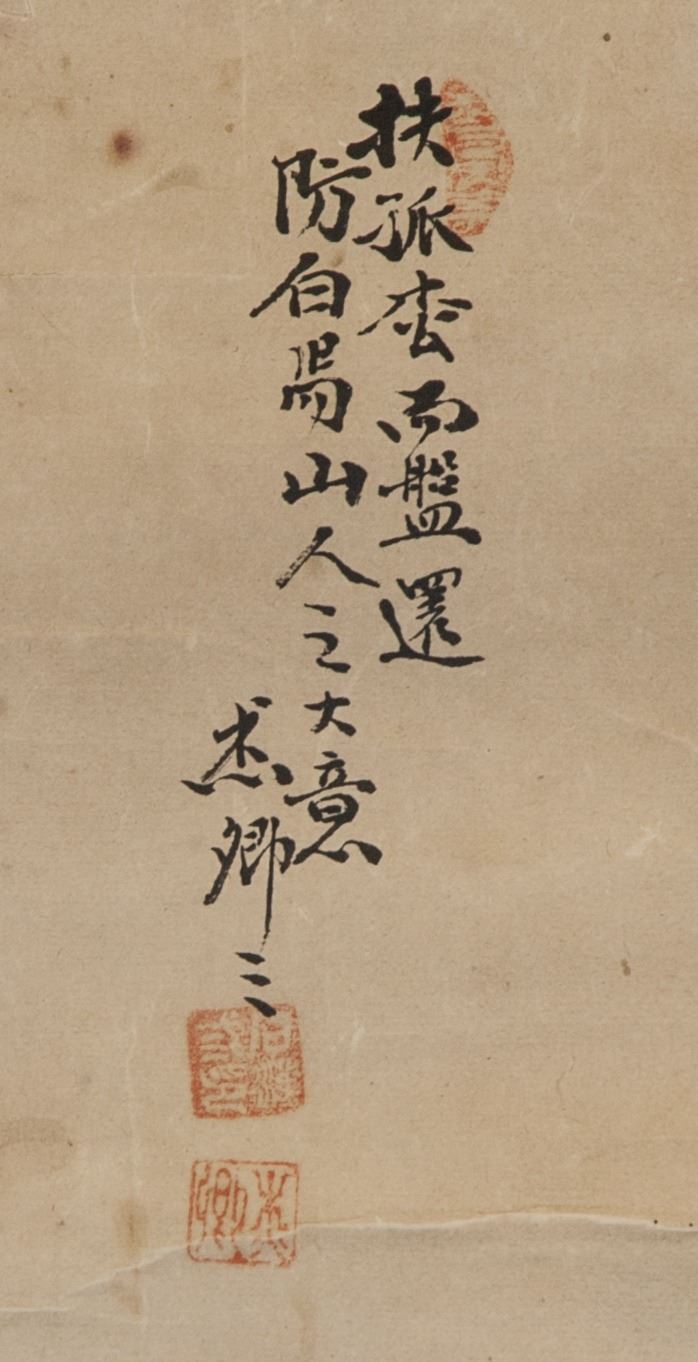 扶孤枩而盤還
防白昜山人之大意
杰卿